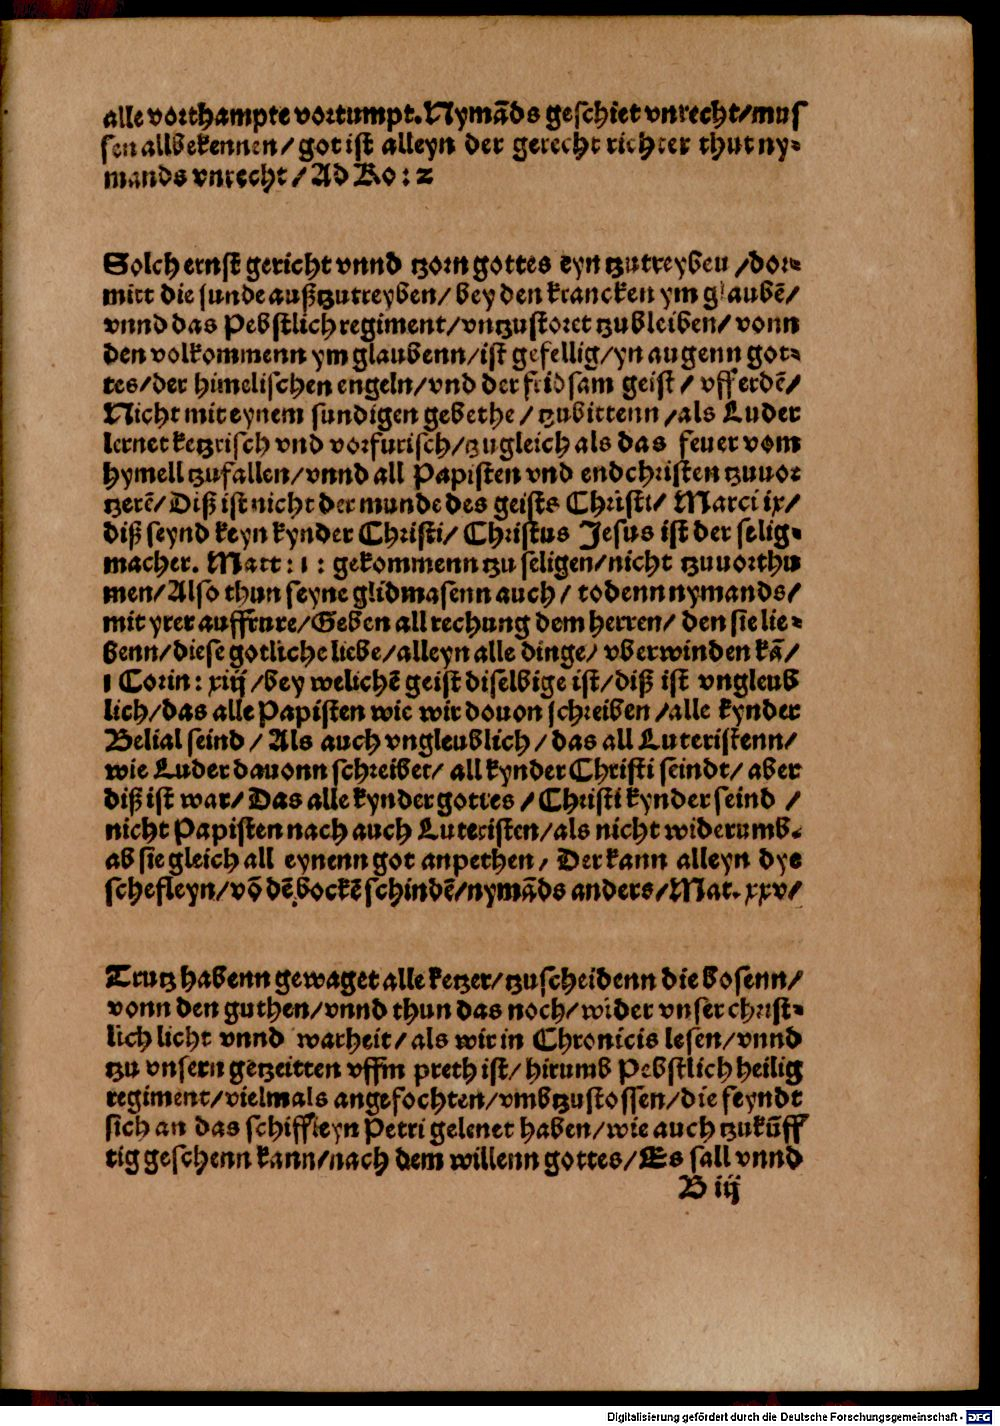 alle vorthampte vortumpt. Nymãds geschiet vnrecht/mus
sen all bekennen/ got ist alleyn der gerecht richter thut ny⸗
mands vnrecht/ Ad Ro: 2
Solch ernst gericht vnnd tzorn gottes eyn tzutreyben /dor⸗
mitt die sunde außtzutreyben/ bey den krancken ym glaubẽ/
vnnd das Pebstlich regiment/vntzustoret tzubleiben/ vonn
den volkommenn ym glaubenn/ist gefellig/yn augenn got⸗
tes/der himelischen engeln/vnd der fridsam geist/ vff erdẽ/
Nicht mit eynem sundigen gebethe/ tzubittenn/als Luder
lernet ketzrisch vnd vorfurisch/tzugleich als das feuer vom
hymell tzufallen/vnnd all Papisten vnd endchristen tzuuor
tzerẽ/ Diß ist nicht der munde des geists Christi/ Marci ix/
diß seynd keyn kynder Christi/ Christus Jesus ist der selig⸗
macher. Matt: 1: gekommenn tzu seligen/nicht tzuuorthu
men/Also thun seyne glidmasenn auch/ todenn nymands/
mit yrer auffrure/Geben all rechung dem herren/ den sie lie⸗
benn/diese gotliche liebe/alleyn alle dinge/ vberwinden kã/
1 Corin: xiij/bey welichẽ geist diselbige ist/diß ist vngleub
lich/das alle Papisten wie wir douon schreiben/alle kynder
Belial seind/ Als auch vngleublich/das all Luteristenn/
wie Luder dauonn schreibet/ all kynder Christi seindt/ aber
diß ist war/ Das alle kynder gottes/ Christi kynder seind /
nicht Papisten nach auch Luteristen/als nicht widerumb.
ab sie gleich all eynenn got anpethen/ Der kann alleyn dye
schefleyn/võ dẽ bockẽ schindẽ/nymãds anders/Mat. xxv/
Trutz habenn gewaget alle ketzer/tzuscheidenn die bosenn/
vonn den guthen/vnnd thun das noch/wider vnser christ⸗
lich licht vnnd warheit/als wir in Chronicis lesen/vnnd
tzu vnsern getzeitten vffm preth ist/ hirumb Pebstlich heilig
regiment/vielmals angefochten/vmbtzustossen/die feyndt
sich an das schiffleyn Petri gelenet haben/wie auch tzukũff
tig geschenn kann/nach dem willenn gottes/Es sall vnnd
B iij
Digitalisierung gefördert durch die Deutsche Forschungsgemeinschaft - DFG